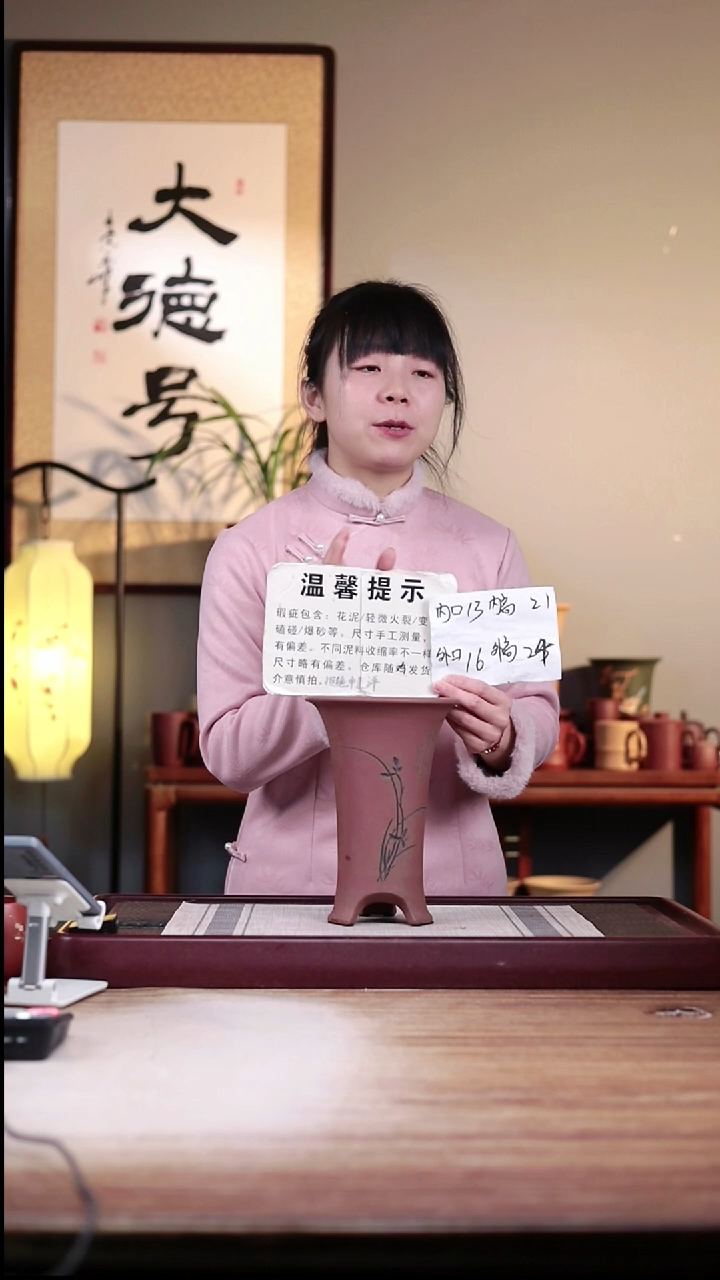 大
德
号
温馨提示
瑕疵包含：花泥/轻微火裂/变
磕碰/爆砂等。尺寸手工测量，
有偏差。不同泥料收缩率不一样
尺寸略有偏差，仓库随机发货
介意慎拍。
内口13内高 21
外口16 外高 24